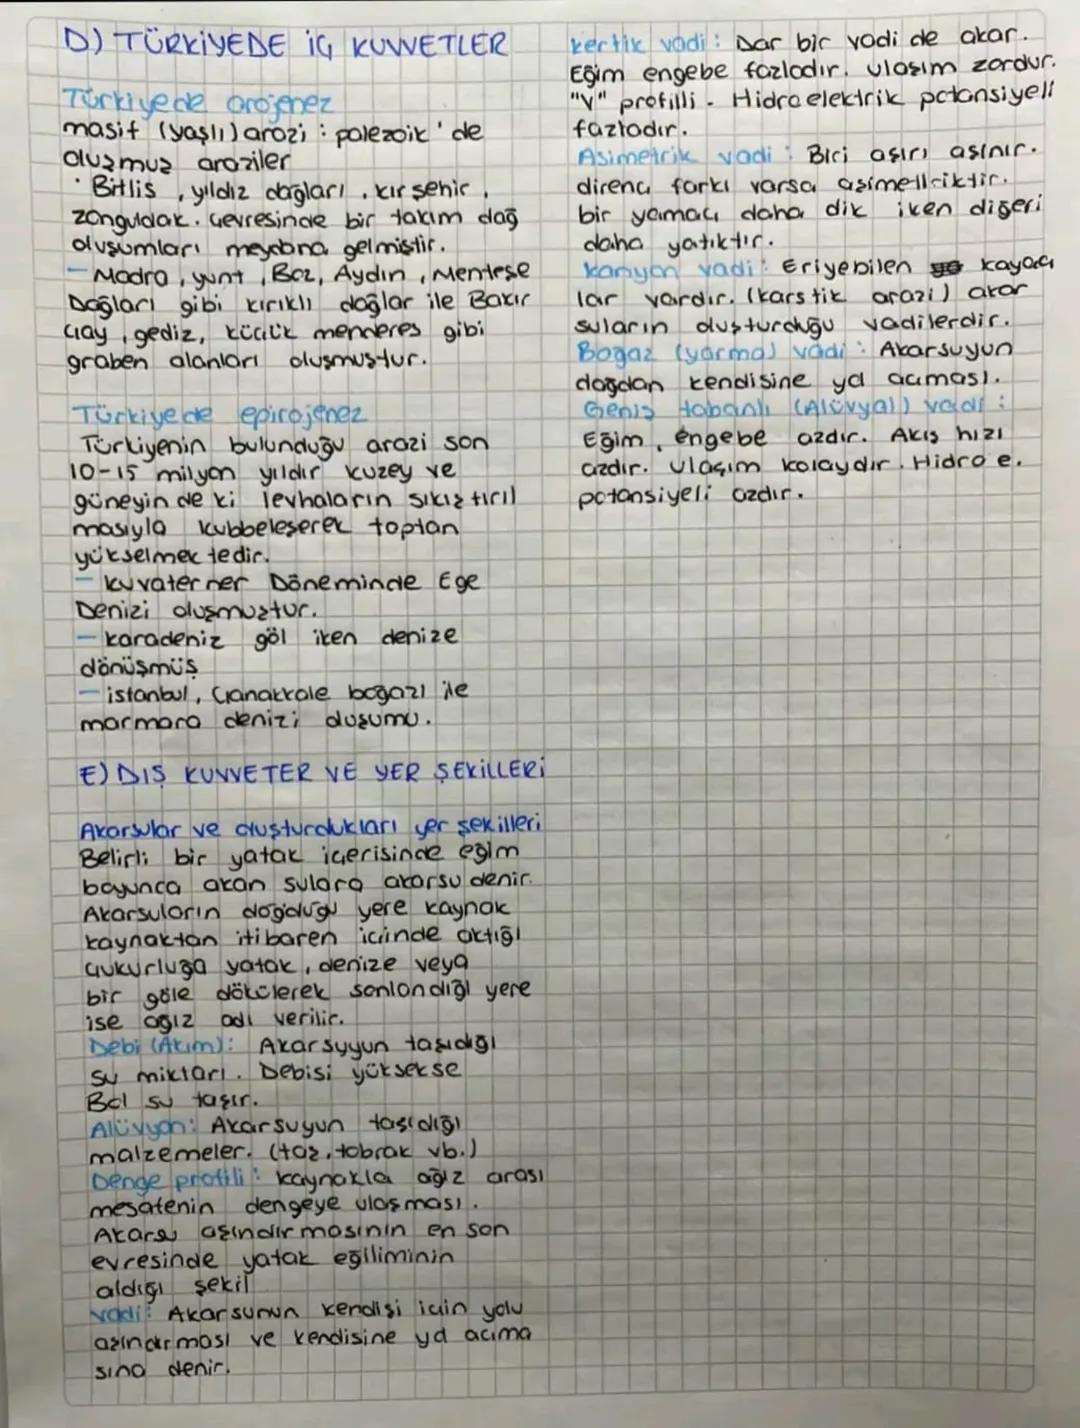 D) TÜRKİYEDE İÇ KUVVETLER
Türkiyede orojenez
masif (yaşlı) arazi : palezoik'de
oluşmuş araziler
· Bitlis, yıldız dağları, kırşehir,
zonguldak. çevresinde bir takım dağ
oluşumları meydana gelmiştir.
- Madra, yunt, Boz, Aydın, Menteşe
Dağları gibi kırıklı dağlar ile Bakır
çay, gediz, küçük menderes gibi
graben alanları oluşmuştur.
Türkiyede epirojenez
Türkiyenin bulunduğu arazi son
10-15 milyon yıldır kuzey ve
güneyin de ki levhaların sıkıştırıl
masıyla kubbeleşerek toptan
yükselmek tedir.
- kuvaterner Döneminde Ege
Denizi oluşmuştur.
- karadeniz göl iken denize
dönüşmüş
- istanbul, Çanakkale boğazı ile
marmara denizi oluşumu.
E) DIŞ KUVVETER VE YER ŞEKİLLERİ
Akarsular ve oluşturdukları yer şekilleri
Belirli bir yatak içerisinde eğim
boyunca akan sulara akarsu denir.
Akarsuların doğduğu yere kaynak
kaynaktan itibaren içinde aktığı
çukurluğa yatak, denize veya
bir göle dökülerek sonlandığı yere
ise ağız adı verilir.
Debi (Akım): Akarsuyun taşıdığı
su miktarı. Debisi yüksekse
Bol su taşır.
Alüvyon: Akarsuyun taşıdığı
malzemeler. (taş, tobrak vb.)
Denge profili: kaynakla ağız arası
mesafenin dengeye ulaşması.
Akarsu aşındırmasının en son
evresinde yatak eğiliminin
aldığı şekil
Vadi: Akarsunun kendisi için yolu
aşındırması ve kendisine yol açma
sına denir.
kertik vadi: Dar bir vadi de akar.
Eğim engebe fazladır. ulaşım zordur.
"V" profilli. Hidroelektrik potansiyeli
fazladır.
Asimetrik vadi: Biri aşırı aşınır.
direnç farkı varsa asimetriktir.
bir yamacı daha dik iken diğeri
daha yatıktır.
kanyon vadi: Eriyebilen kayaç
lar vardır. (karstik arazi) akar
suların oluşturduğu vadilerdir.
Boğaz (yarma) vadi: Akarsuyun
dağdan kendisine yol açması.
Geniş tabanlı (Alüvyal) vadi:
Eğim, engebe azdır. Akış hızı
azdır. ulaşım kolaydır. Hidro e.
potansiyeli azdır.